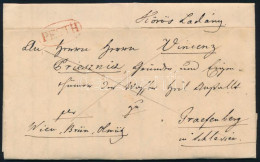 PESTH
Körös Ladány
An Herrn Herrn Vincenz
Priesznitz, Gründer und Eigen-
thümer der Wasser Heil Anstalt
per zu
Wien, Brün, Olmütz Graefenberg
in Schlesien